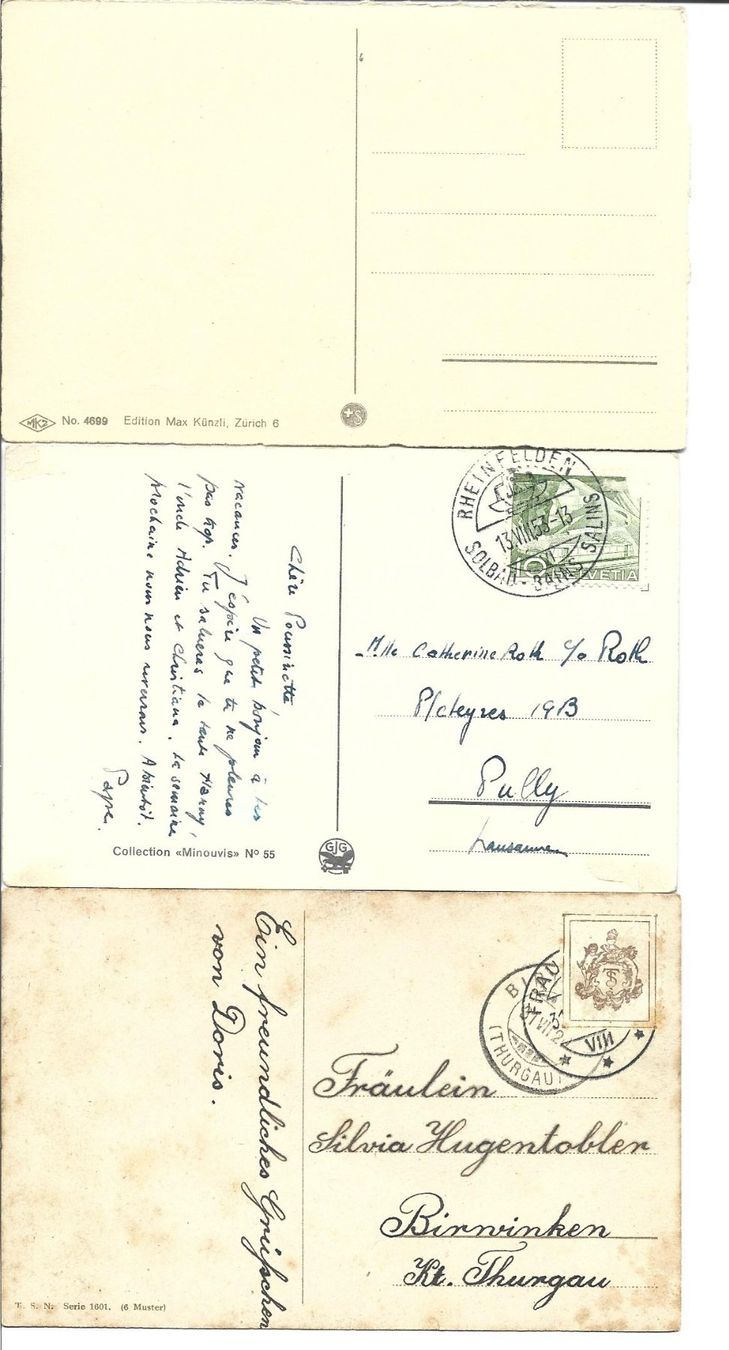 MK2 No. 4699 Edition Max Künzli, Zürich 6
+S
RHEINFELDEN
13.VIII.53-13
VI
SOLBAD - BAINS SALINS
10 HELVETIA
Chère Poussinette
Un petit bonjour à tes
vacances. J'espère que tu ne pleures
pas trop. Tu salueras la tante
l'oncle Adrien et Christiane. La semaine
prochaine nous nous reverrons. A bientôt.
Papa.
Mlle Catherine Roth c/o Roth
Plateyres 19B
Pully
Lausanne
Collection «Minouvis» Nº 55
GJG
Ein freundliches Grüßchen
von Doris.
FRAU
VIII
(THURGAU)
Fräulein
Silvia Hugentobler
Birwinken
Kt. Thurgau
T. S. N. Serie 1601. (6 Muster)